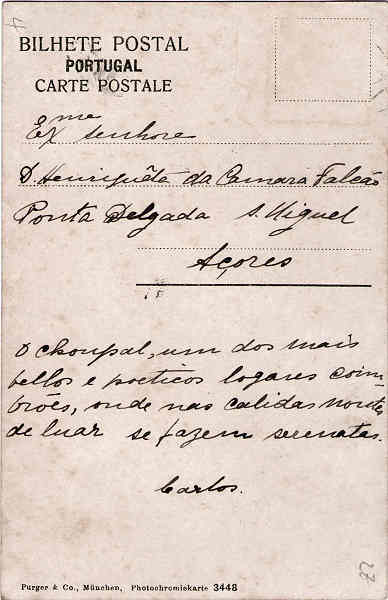 BILHETE POSTAL
PORTUGAL
CARTE POSTALE
Exme senhora
D. Henriquêta da Camara Falcão
Ponta Delgada S. Miguel
Açores
O choupal, um dos mais
bellos e poeticos logares coim-
brões, onde nas calidas noutes
de luar se fazem serenatas.
Carlos.
Purger & Co., München, Photochromiekarte 3448